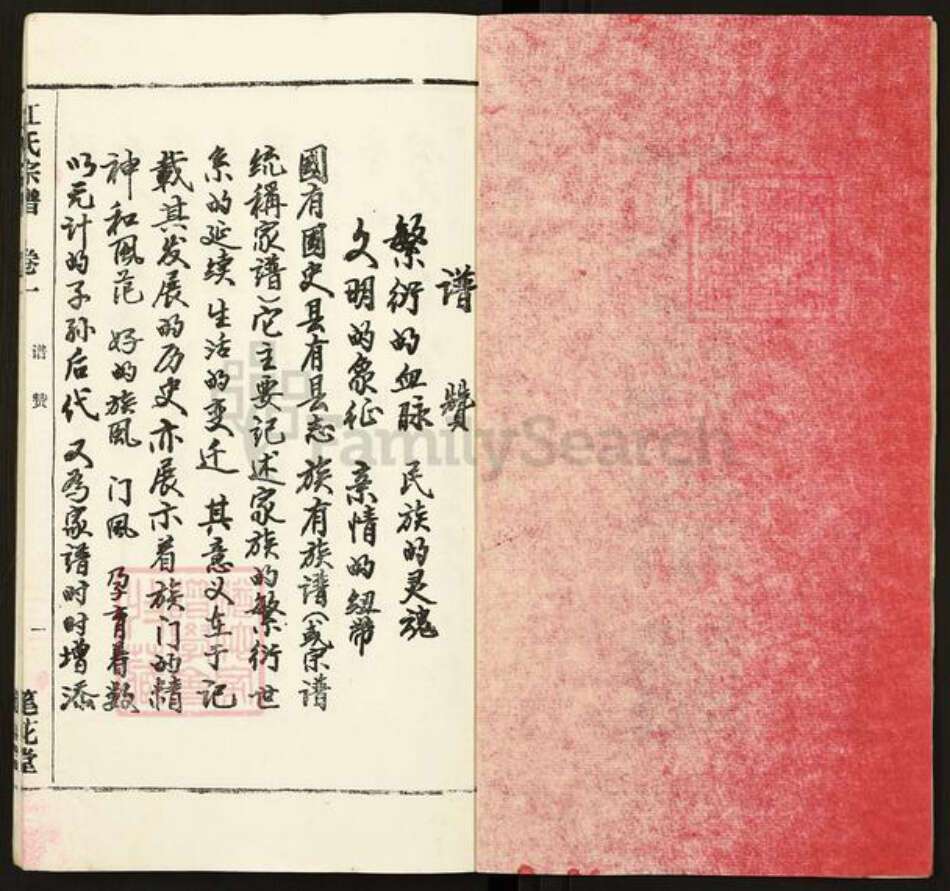 谱赞
繁衍的血脉 民族的灵魂
文明的象征 亲情的纽带
國有國史县有县志 族有族谱(或宗谱
统稱家谱)它主要记述家族的繁衍世
系的延续 生活的变迁 其意义在于记
載其发展的历史亦展示着族门的精
神和风范 好的族风 门风 孕育着数
以元计的子孙后代 又為家谱时时增添
江氏宗譜 卷一 谱赞 一 笔花堂
FamilySearch